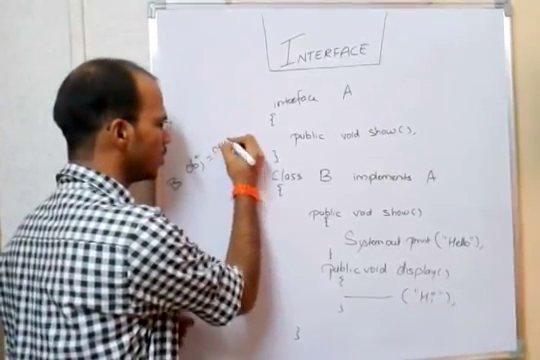 INTERFACE
interface A
{
public void show();
}
Class B implements A
{
public void show()
{
System out print ("Hello");
}
public void display()
{
("Hi");
}
}
B obj =